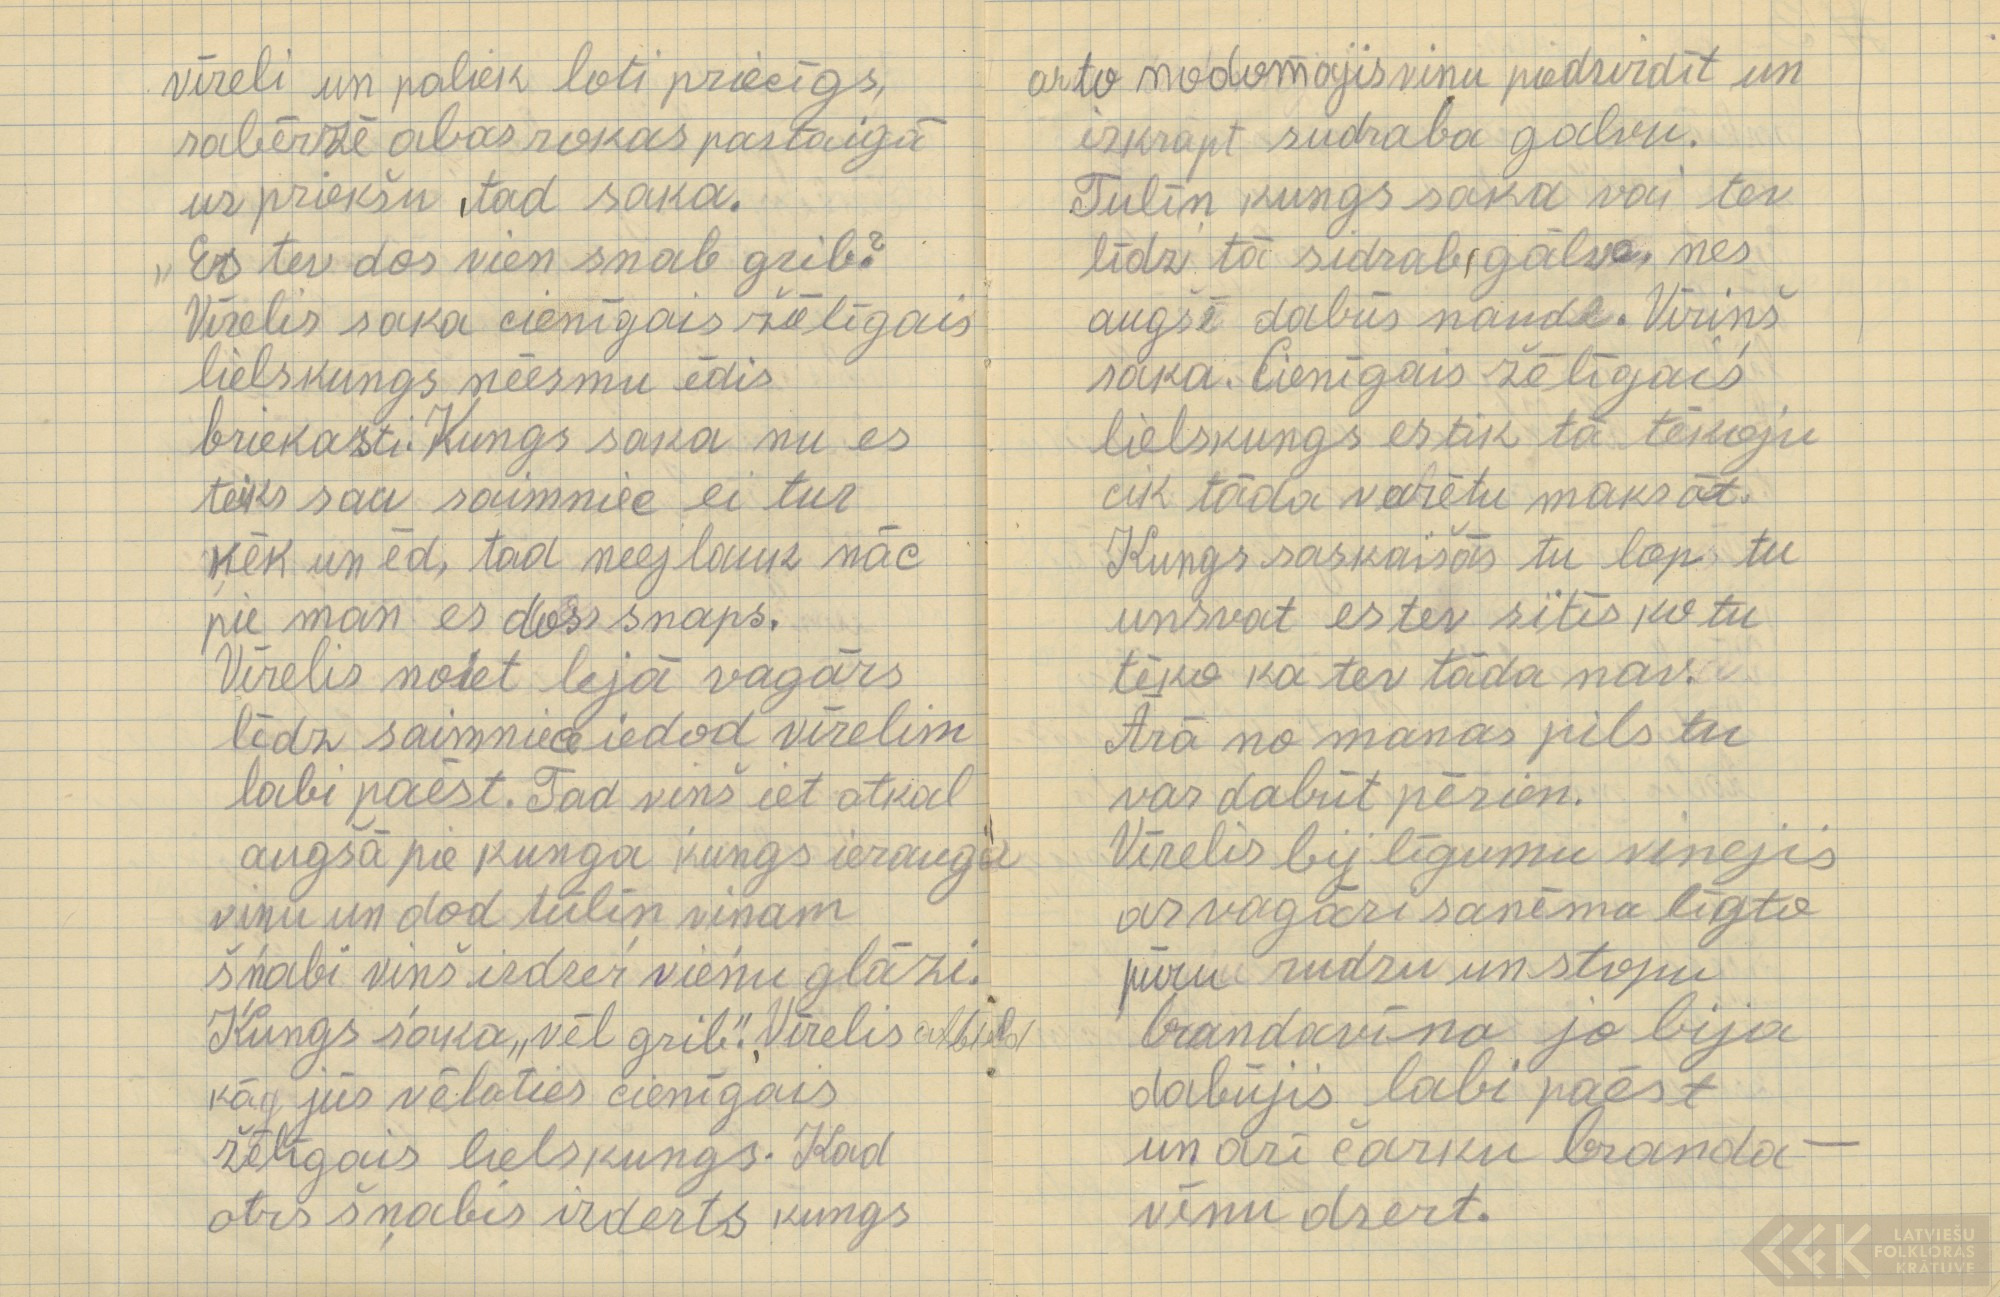 vīreli un paliek loti priecīgs,
sabērzē abas rokas pastaigā
uz priekšu, tad saka.
„Es tev dos vien snab grib?
Vīrelis saka cienīgais žēlīgais
lielskungs nēesmu ēdis
briekasti. Kungs saka nu es
teiks sau saimniec ei tur
ķēk un ēd, tad neej lauk nāc
pie man es dos snaps.
Vīrelis noiet lejā vagārs
līdz saimniece iedod vīrelim
labi paēst. Tad vinš iet atkal
augšā pie kunga kungs ierauga
vinu un dod tūlīn vinam
šnabi vinš izdzer vienu glāzi.
Kungs saka „vēl grib". Vīrelis atbild
kāq jūs vēlaties cienīgais
žēlīgais lielskungs. Kad
otrs šņabis izderts kungs
ar to nodomājis vinu piedzirdīt un
izkrāpt sudraba galvu.
Tulīn kungs saka vai tev
līdz tā sidrab, gālva, nes
augšē dabūs naude. Vīrinš
saka. Cienīgais žēlīgais
lielskungs es tik tā tēkoju
cik tāda varētu maksāt.
Kungs saskaišās tu lop tu
unsvat es tev sitīs ko tu
tēko ka tev tāda nav.
Ārā no manas pils tu
var dabūt pērien.
Vīrelis bij līgumu vinejis
ar vagāri sanēma līgto
pūru rudzu un stopu
brandavīna jo bija
dabūjis labi paēst
un arī čarku branda-
vēnu dzert.
LATVIEŠU
FOLKLORAS
KRĀTUVE